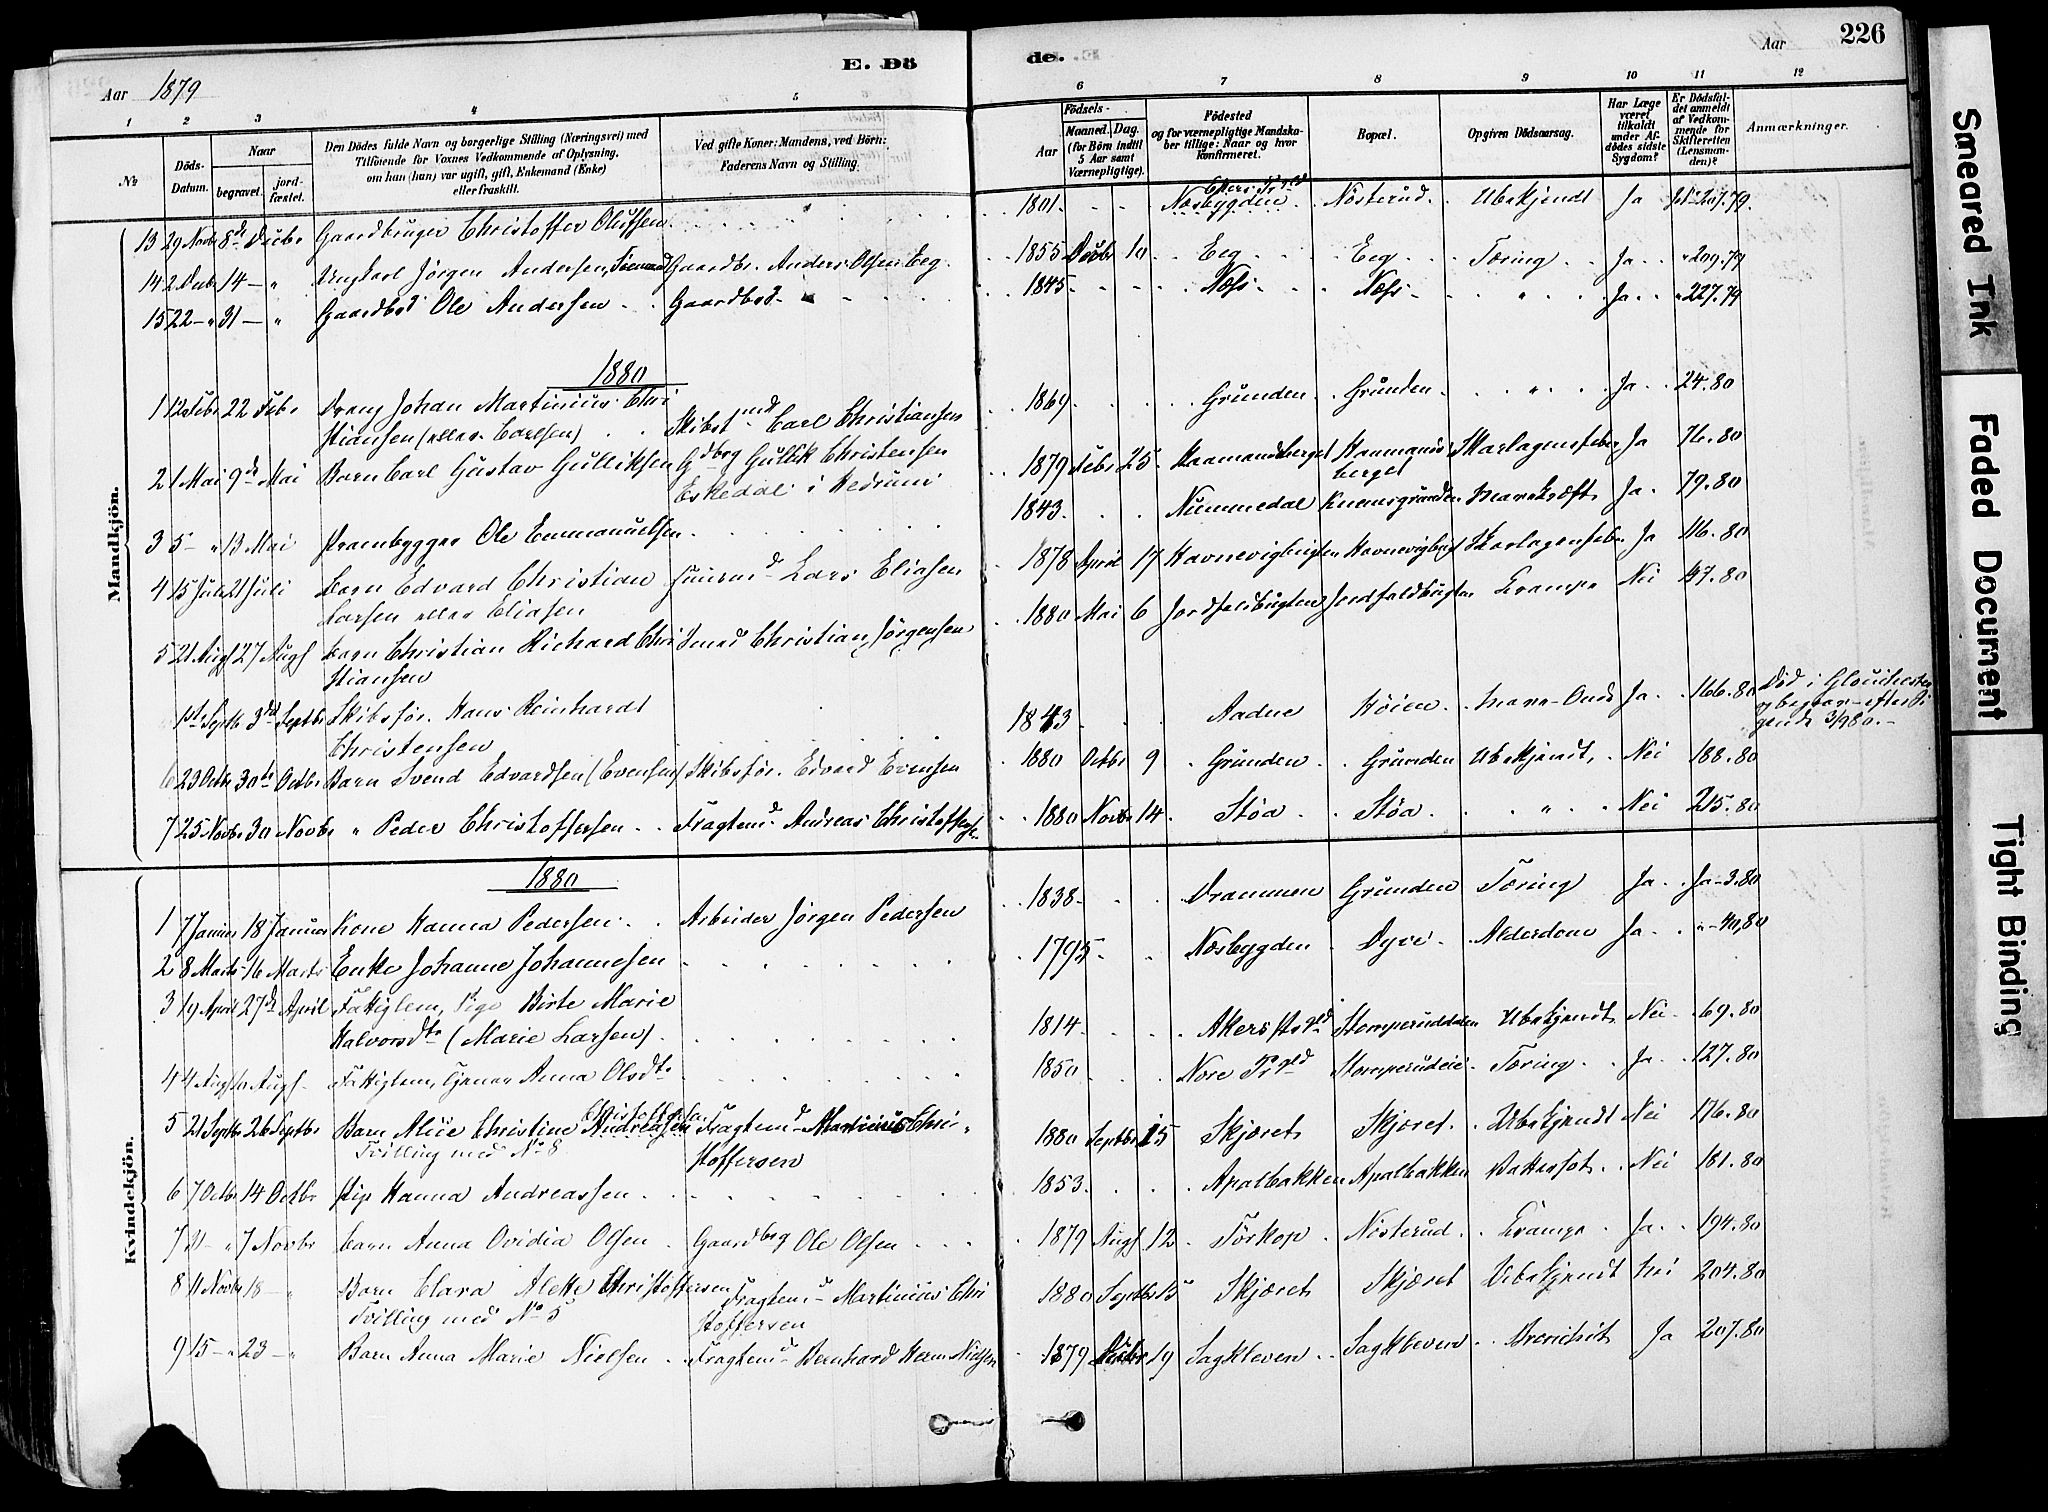 226
E. Dö
de.
Aar 1879
Aar
1 2 3 4 5 6 7 8 9 10 11 12
№
Döds-Datum.
Naar
begravet.
jord-fæstet.
Den Dödes fulde Navn og borgerlige Stilling (Næringsvei) med
Tilföiende for Voxnes Vedkommende af Oplysning,
om han (hun) var ugift, gift, Enkemand (Enke)
eller fraskilt.
Ved gifte Koner: Mandens, ved Börn:
Faderens Navn og Stilling.
Födsels-
Aar
Maaned. Dag.
(for Börn indtil
5 Aar samt
Værnepligtige).
Födested
og for værnepligtige Mandska-
ber tillige: Naar og hvor
konfirmeret.
Bopæl.
Opgiven Dödsaarsag.
Har Læge
været
tilkaldt
under Af-
dödes sidste
Sygdom?
Er Dödsfal-
det anmeldt
af Vedkom-
mende for
Skifteretten
(Lensman-
den)?
Anmærkninger.
Mandkjön.
13 29 Novbr 8de Decbr Gaardbruger Christoffer Olufsen 1801. Næsbygden Nösterud Ubekjendt Ja 207.79.
14 2 Decbr 14 — " Ungkarl Jörgen Andersen, Gaardbr. Anders Olsen Eeg. 1855 Decbr 10 Eeg Eeg Tæring Ja " 209.79
15 22 — " 31 — " Gaardbrd Ole Andersen Gaardbrd 1845 Næss Næss " Ja " 227.79
1880
1 12 Febr 22 Febr Dreng Johan Martinius Chri
stiansen (eller Carlsen) Skibst.md Carl Christiansen 1869 Grunden Grunden " Ja 24.80
2 1 Mai 9de Mai Barn Carl Gustav Gulliksen Gdbrg Gullik Christensen
Eskedal i Hedrum 1879 Febr 25 Haamandsberget Haamands
berget Skarlagensfeber Ja 76.80
3 5 — " 13 Mai Prambygger Ole Emmanuelsen 1843. Nummedal Knemsgrunden Mavekræft Ja 79.80
4 15 Juli 21 Juli Barn Edvard Christian
Larsen eller Eliasen Lars Eliasen 1878 April 17 Havnevigbugten Havnevigbugt Skarlagensfeber Ja 116.80
5 21 Augs 27 Augs Barn Christian Richard Chri
stiansen Christian Jörgensen 1880 Mai 6 Jordfaldbugten Jordfaldbugten Krampe Nei 147.80
1ste Septbr 3die Septbr Skibsför. Hans Reinhardt
Christensen 1843 Aadne Höien Mave-Onde Ja 166.80 Död i Glouchester
og begrav. efter
gende 3/9 80. —
6 23 Octbr 30te Octbr Barn Svend Edvardsen (Evensen) Skibsför. Edvard Evensen 1880 Octbr 9 Grunden Grunden Ubekjendt Nei 188.80
7 25 Novbr 30 Novbr " Peder Christoffersen Fragtemd Andreas Christoffersen 1880 Novbr 14 Stöa Stöa " Nei 215.80
Kvindekjön.
1880
1 7 Januar 18 Januar Kone Hanna Pedersen Arbeider Jörgen Pedersen 1838 Drammen Grunden Tæring Ja Ja — 3.80
2 8 Marts 16 Marts Enke Johanne Johannesen 1795 Næsbygden Dyve Alderdom Ja " — 40,80
3 19 April 27de April Fattiglem, Pige Birte Marie
Halvorsdtr (Marie Larsen) 1814 Akers Prgld Stomperuddalen Ubekjendt Nei 69.80
4 4 Augs 10 Augs Fattiglem, Anna Olsdtr 1850 Nore Prgld Stomperudeie Tæring Ja 127.80
5 21 Septbr 26 Septbr Barn Alice Christine Christoffersen Andreasen Fragtemd Martinius Chri
Tvilling med No 8 stoffersen 1880 Septbr 15 Skjæret Skjæret Ubekjendt Nei 176.80
6 7 Octbr 14 Octbr Pige Hanna Andreassen 1853. Apalbakken Apalbakken Vattersot Nei 181.80
7 31 — " 7 Novbr Barn Anna Ovidia Olsen Gaardbrg Ole Olsen 1879 Augs 12 Torkop Nösterud Krampe Ja 194.80
8 11 Novbr 18 — " Barn Clara Alette Christoffersen Fragtemd Martinius Chri
Tvilling med No 5 stoffersen 1880 Septbr 15 Skjæret Skjæret Ubekjendt Nei 204.80
9 15 — " 23 — " Barn Anna Marie Nielsen Fragtemd Bernhard Herm. Nielsen 1879 Decbr 19 Sagkleven Sagkleven Bronchit Ja 207.80
Smeared Ink
Faded Document
Tight Binding